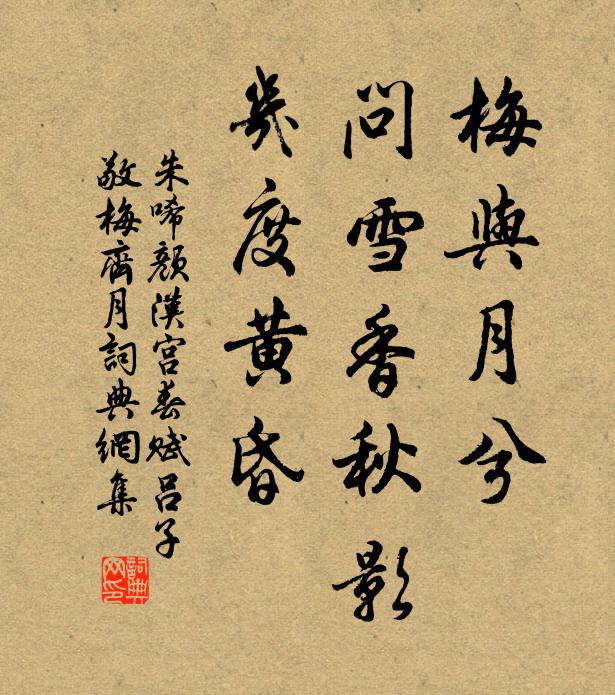 梅與月兮
問雪香秋影
幾度黃昏
朱晞顏漢宮春賦呂子
敬梅齋月詞典網集
詞典網印